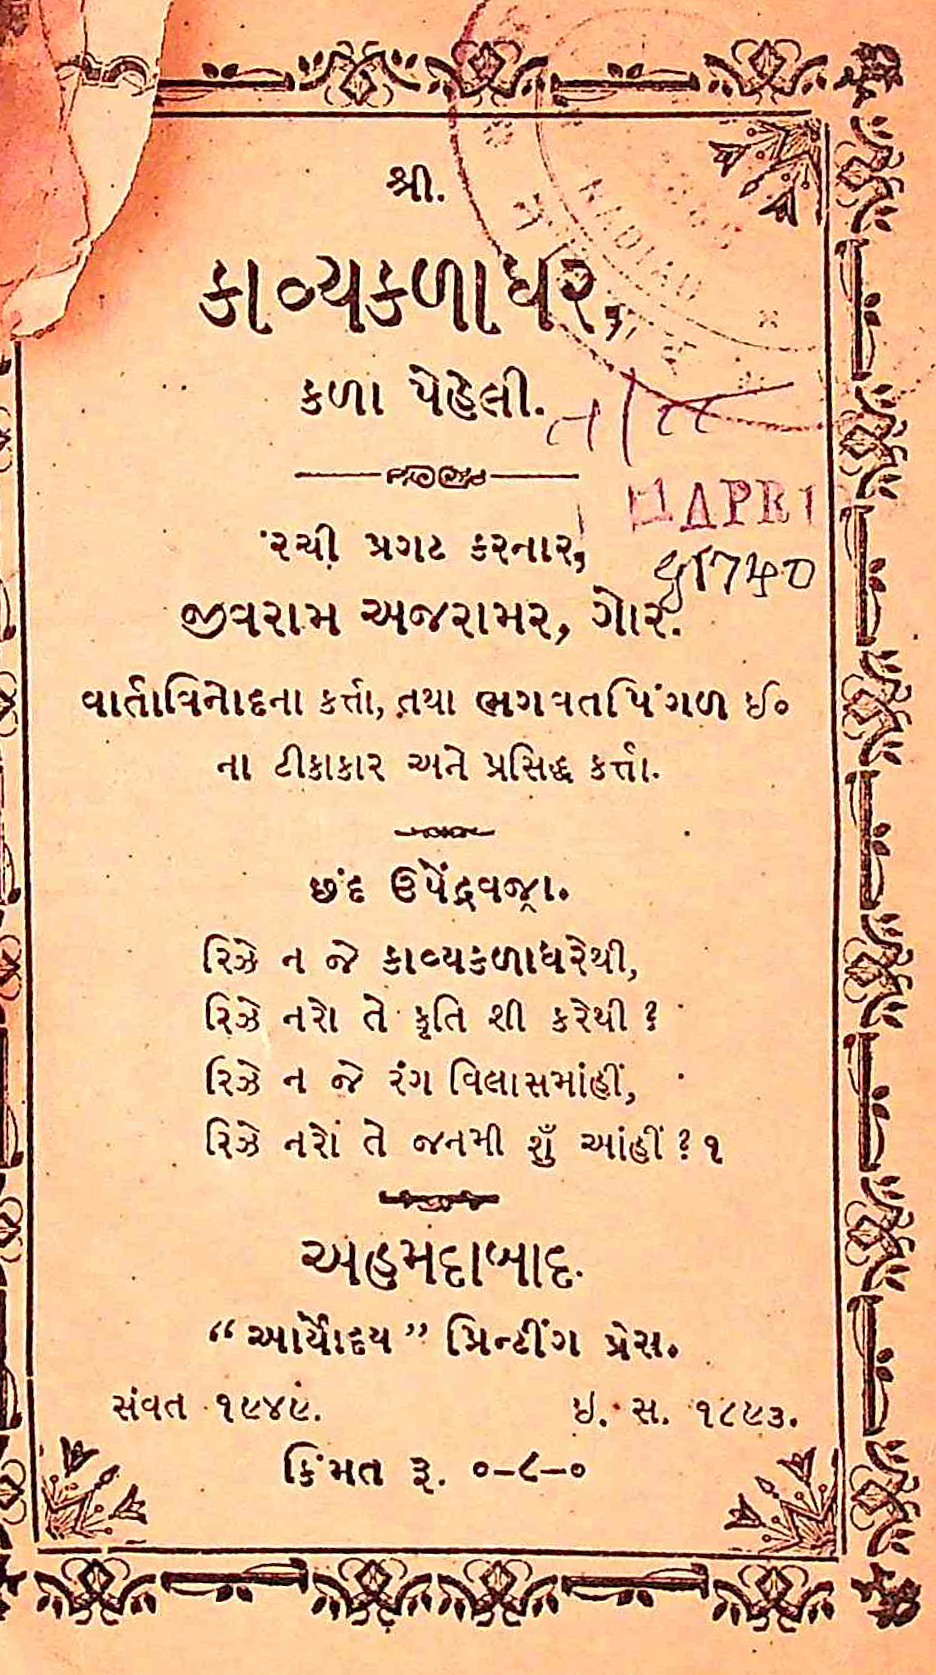 શ્રી.
કાવ્યકળાધર,
કળા પેહેલી.
11 APR 1
રચી પ્રગટ કરનાર,
1740
જીવરામ અજરામર, ગોર.
વાર્તાવિનોદના કર્ત્તા, તથા ભગવતપિંગળ ઈ૦
ના ટીકાકાર અને પ્રસિદ્ધ કર્ત્તા.
છંદ ઉપેંદ્રવજ્રા.
રિઝે ન જે કાવ્યકળાધરેથી,
રિઝે નરો તે કૃતિ શી કરેથી ?
રિઝે ન જે રંગ વિલાસમાંહીં,
રિઝે નરો તે જનમી શુઁ આંહીં ? ૧
અહમદાબાદ.
“આર્યોદય” પ્રિન્ટીંગ પ્રેસ.
સંવત ૧૯૪૯. ઇ. સ. ૧૮૯૩.
કિંમત રૂ. ૦-૮-૦
NADIAD